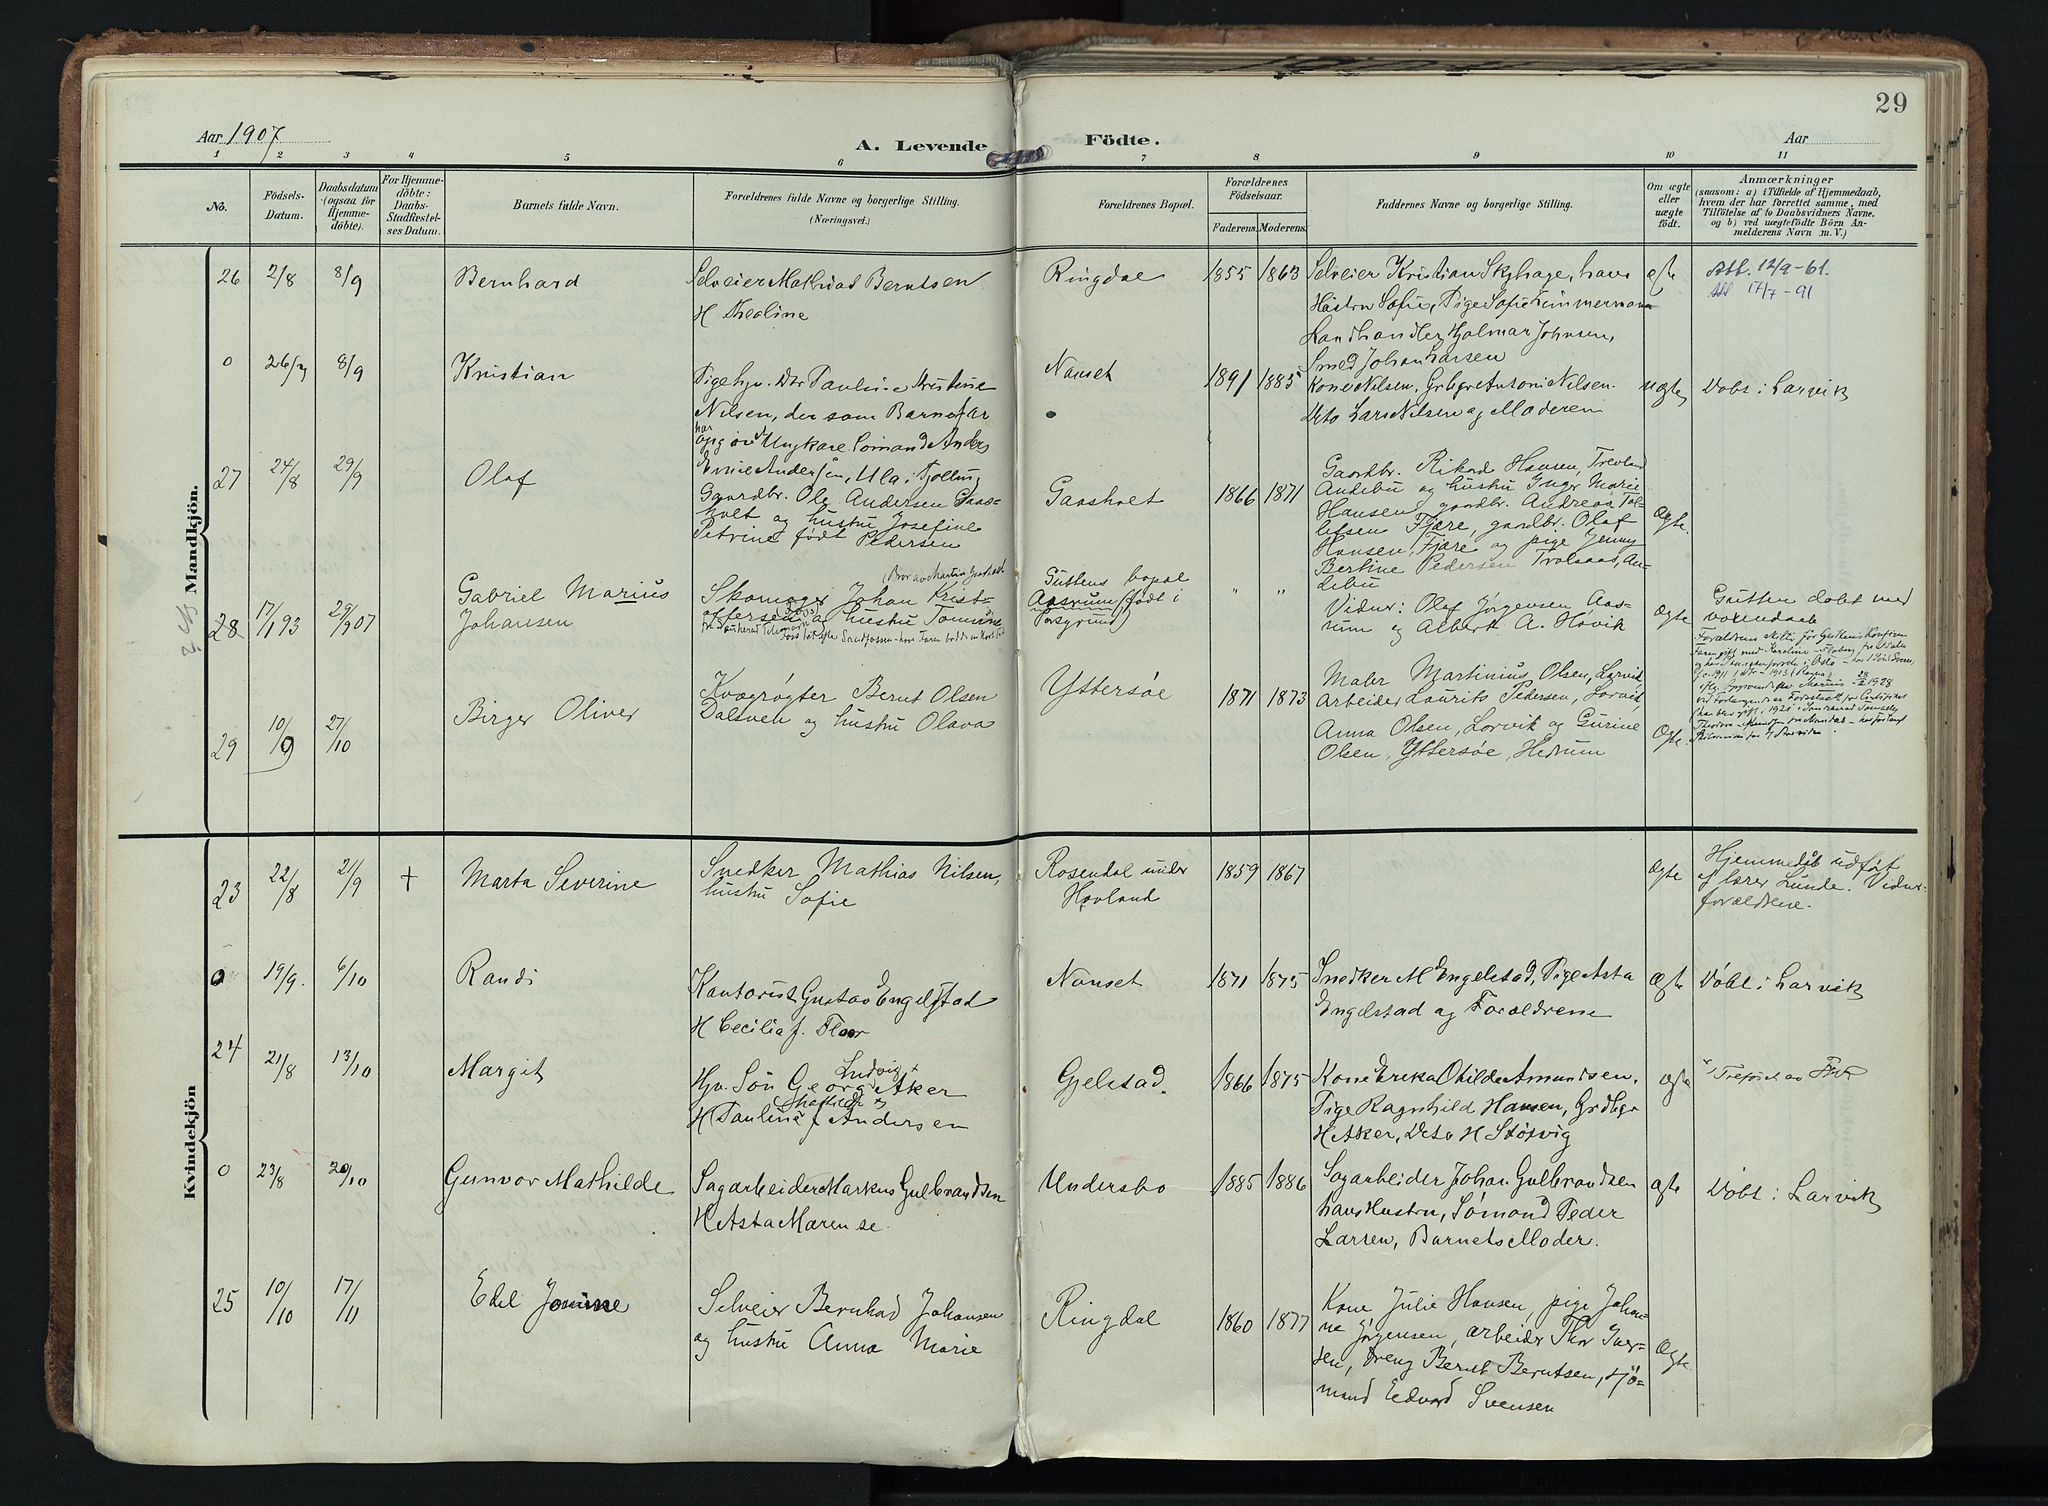 29
Aar 1907
A. Levende Födte.
Aar
1 2 3 4 5 6 7 8 9 10 11
No.
Födsels-Datum.
Daabsdatum (ogsaa for Hjemmedöbte).
For Hjemmedöbte: Daabs-Stadfestelses Datum.
Barnets fulde Navn.
Forældrenes fulde Navne og borgerlige Stilling.
(Næringsvei.)
Forældrenes Bopæl.
Forældrenes Födselsaar.
Faderens. Moderens.
Faddernes Navne og borgerlige Stilling.
Om ægte eller uægte födt.
Anmærkninger
(saasom: a) i Tilfælde af Hjemmedaab, hvem der har forrettet samme, med Tilföielse af to Daabsvidners Navne, og b) ved uægtefödte Börn Anmelderens Navn m. V.)
Mandkjön.
26 2/8 8/9 Bernhard
Selveier Mathias Berntsen
H Theoline
Ringdal 1855 1863
Selveier Kristian Skyhage, hans
Hustru Sofie, Pige Sofie Zimmermann
Landhandler Hjalmar Johnsen,
Smed Johan Larsen
ægte
Att. 12/9-61.
Att 17/7-91
0 8/9 Kristian
Pige Pauline Kristine
Nilsen, der som Barnefar
har opgivet Ungkarl Sömand Anders
Emil Andersen, Ula i Tjölling
Nanset 1891 1885
Kone Nilsen, Grbgr Antoni Nilsen.
Dito Lars Nilsen og Moderen
uægte
Döbt i Larvik
27 24/8 29/9 Olaf
Gaardbr. Ole Andersen Gaas-
holt og hustru Josefine
Petrine født Pedersen
Gaasholt 1866 1871
Gaardbr. Rikard Hansen, Trevland
Andebu og hustru Inger Marie
Hansen, gaardbr. Andreas Tol-
lefsen Fjære, gaardbr. Olaf
Hansen, Fjære og pige Jenny
Bertine Pedersen Trolsaas, An-
debu
Ægte
28 17/1 93 29/9 07
Gabriel Marius
Johansen
Skomager Johan Krist-
offersen og hustru Tomine
Guttens bopæl
Aasrum (født i
Porsgrund)
" "
Vidner: Olaf Jørgensen Aas-
rum og Albert A. Hovik
Ægte
Gutten døbt med
voxendaab
29 10/9 27/10 Birger Oliver
Kvægrøgter Bernt Olsen
Dalsven og hustru Olava
Yttersøe 1871 1873
Maler Martinius Olsen, Larvik,
Arbeider Laurits Pedersen, Larvik,
Anna Olsen, Larvik og Gurine
Olsen, Yttersøe, Hedrum
Ægte.
Kvindekjön
23 22/8 21/9 † Marta Severine
Snedker Mathias Nilsen,
hustru Sofie
Rosendal under
Hovland
1859 1867
Ægte
Hjemmedåb udført
af lærer Lunde. Vidner
forældrene.
0 19/9. 6/10 Randi
Kontorist Gustav Engelstad
H Cecilia f. Floor
Nanset 1871 1875
Snedker M Engelstad, Pige Asta
Engelstad og Forældrene
Ægte
Döbt i Larvik
24 21/8 13/10 Margit
Hjv. Søn Georg Ludvig Aker
H Pauline Mathilde f Andersen
Gjelstad. 1866 1875
Kone Erika Othilde Amundsen,
Pige Ragnhild Hansen, Grdbgr
H Aker, Dito H Støtvig
ægte
Tilføiet av
0 23/8 20/10 Gunvor Mathilde
Sagarbeider Markus Gulbrandsen
H Asta Marense
Undersbo 1885 1886
Sagarbeider Johan Gulbrandsen
hans Hustru, Sömand Peder
Larsen, Barnets Moder.
ægte
Döbt i Larvik
25 10/10 17/11 Edel Jonine
Selveier Bernhad Johansen
og hustru Anna Marie
Ringdal 1860 1877
Kone Julie Hansen, pige Johan-
ne Jørgensen, arbeider Thor Iver-
sen, dreng Bernt Berntsen, sjö-
mand Edvard Svensen
Ægte.